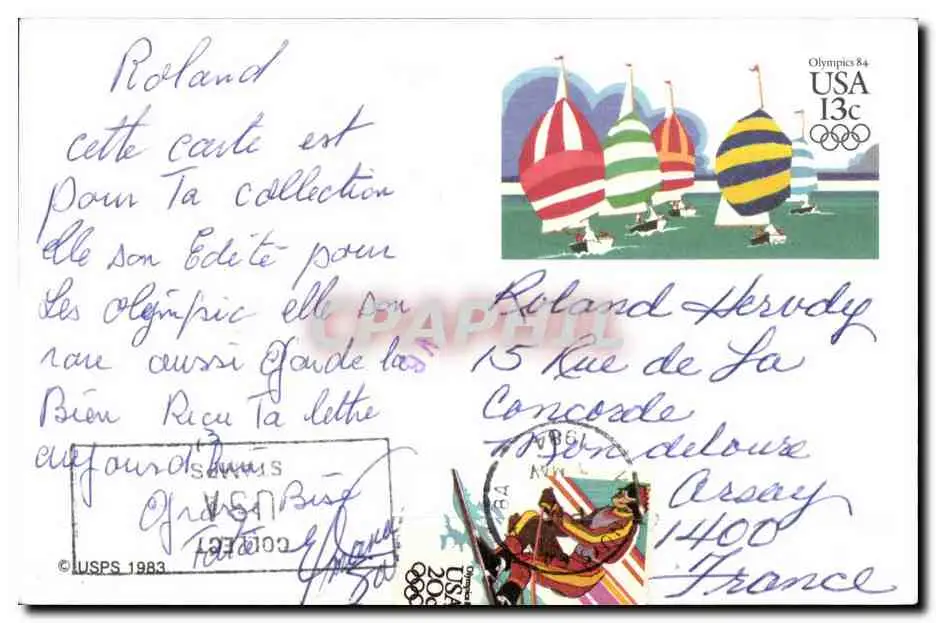 Roland
cette carte est
pour Ta collection
elle son Edité pour
Les olympic elle son
rare aussi Garde las
Bien Reçu Ta lettre
aujourd'hui
Grosse Bise
Tate
Olympics 84
USA
13c
Roland Hervdy
15 Rue de La
Concorde
Mondelouze
Arsay
1400
France
CPAPHIL
COLLECT
USA
STAMPS
1984
VA
Olympics 84
USA
20c
© USPS 1983